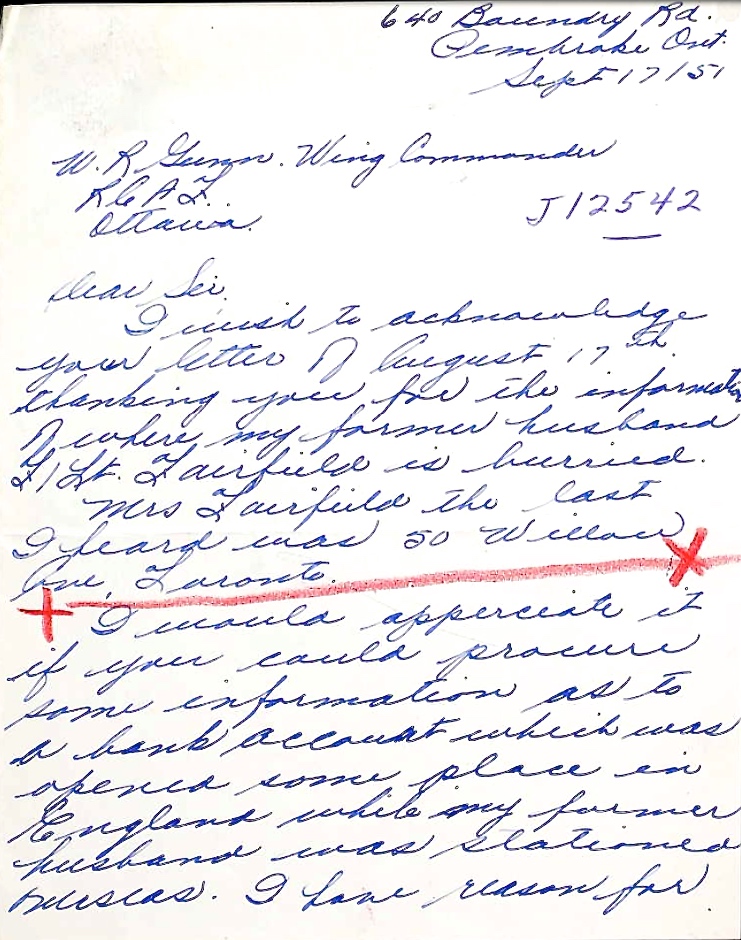 640 Boundry Rd.
Pembroke Ont.
Sept 17/51
W. R. Gunn. Wing Commander
R C A F.
Ottawa.
J12542
Dear Sir.
I wish to acknowledge
your letter of August 17th.
thanking you for the information
of where my former husband
F/Lt. Fairfield is burried.
Mrs Fairfield the last
I heard was 50 Willow
Ave, Toronto.
I would apperciate it
if you could procure
some information as to
a bank account which was
opened some place in
England while my former
husband was stationed
overseas. I have reason for